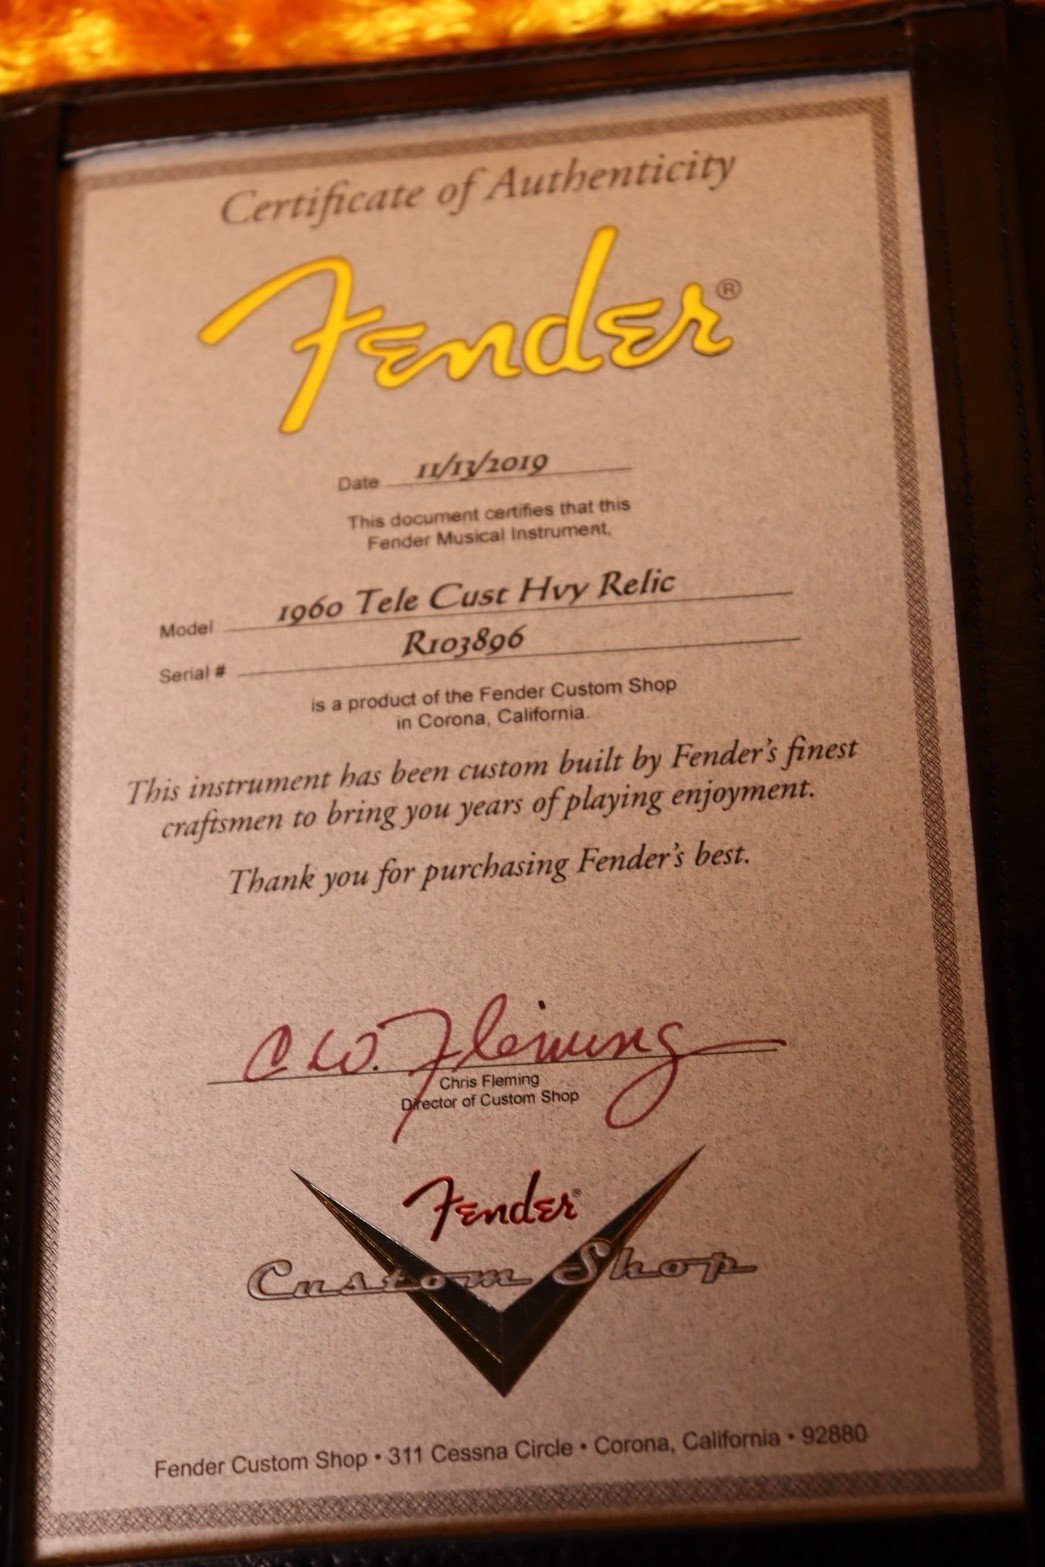 Certificate of Authenticity
Fender®
Date 11/13/2019
This document certifies that this
Fender Musical Instrument,
Model 1960 Tele Cust Hvy Relic
Serial # R103896
is a product of the Fender Custom Shop
in Corona, California.
This instrument has been custom built by Fender's finest
craftsmen to bring you years of playing enjoyment.
Thank you for purchasing Fender's best.
C W. Fleming
Chris Fleming
Director of Custom Shop
Fender®
Custom Shop
Fender Custom Shop • 311 Cessna Circle • Corona, California • 92880